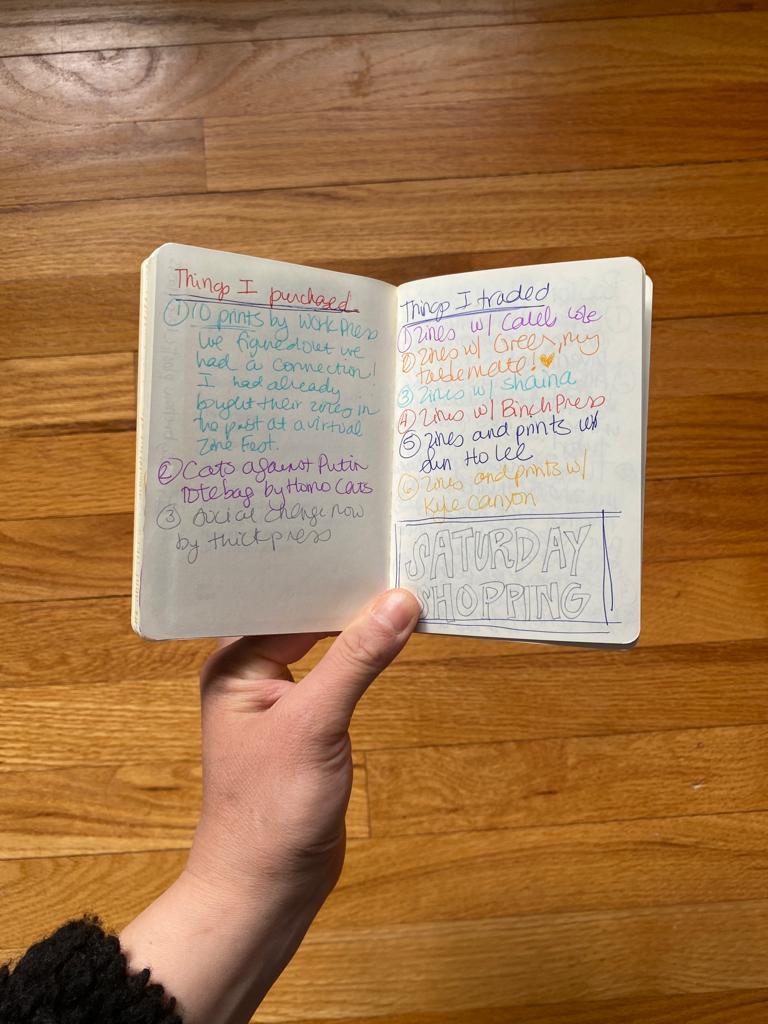 Things I purchased
① 10 prints by WorkPress
We figured out we
had a connection!
I had already
bought their zines in
the past at a virtual
Zine Fest.
② Cats against Putin
totebag by Homo Cats
③ Social Change now
by thick press
Things I traded
① Zines w/ Caleb
② Zines w/ Greer, my
tablemate! 🧡
③ Zines w/ Shaina
④ Zines w/ BinchPress
⑤ Zines and prints w/
Eun Ho Lee
⑥ Zines and prints w/
Kyle Canyon
SATURDAY
SHOPPING